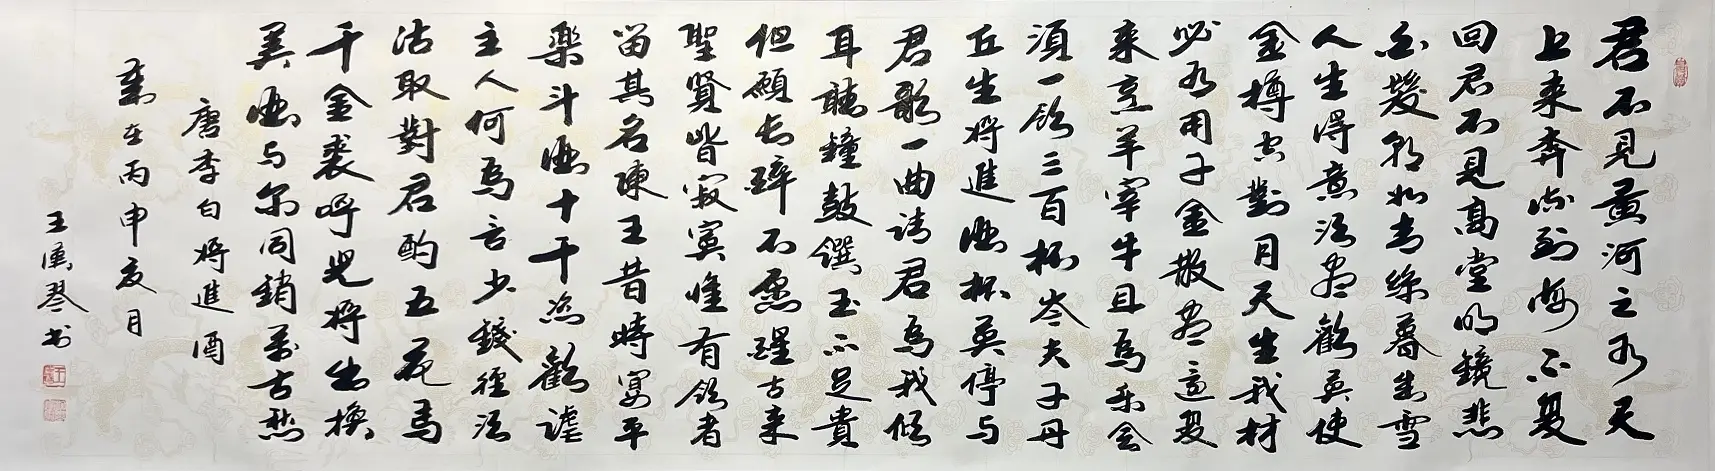 君不見黃河之水天
上来奔流到海不復
回君不見高堂明鏡悲
白髮朝如青絲暮成雪
人生得意須盡歡莫使
金樽空對月天生我材
必有用千金散盡還復
来烹羊宰牛且為樂會
須一飲三百杯岑夫子丹
丘生將進酒杯莫停与
君歌一曲請君為我傾
耳聽鐘鼓饌玉不足貴
但願長醉不願醒古来
聖賢皆寂寞惟有飲者
留其名陳王昔時宴平
樂斗酒十千恣歡謔
主人何為言少錢徑須
沽取對君酌五花馬
千金裘呼兒將出換
美酒与尔同銷萬古愁
唐李白將進酒
歲在丙申夏月
王琴书